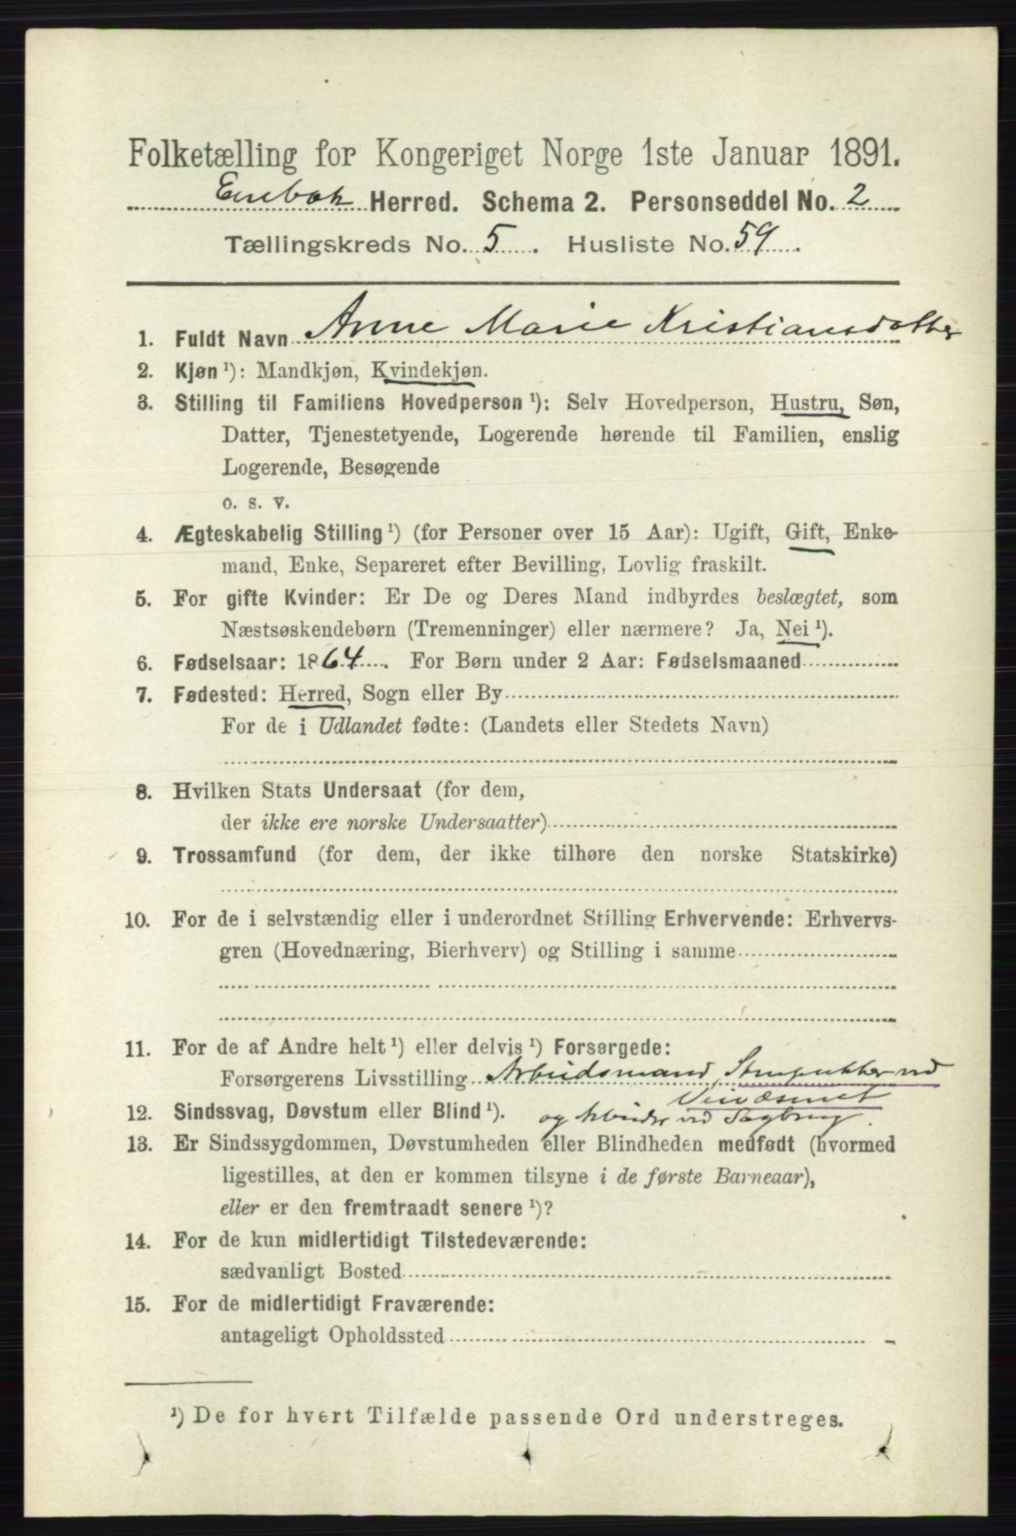 Folketælling for Kongeriget Norge 1ste Januar 1891.
Enebak Herred. Schema 2. Personseddel No. 2
Tællingskreds No. 5. Husliste No. 59.
1. Fuldt Navn Anne Marie Kristiansdatter
2. Kjøn ¹): Mandkjøn, Kvindekjøn.
3. Stilling til Familiens Hovedperson ¹): Selv Hovedperson, Hustru, Søn,
Datter, Tjenestetyende, Logerende hørende til Familien, enslig
Logerende, Besøgende
o. s. v.
4. Ægteskabelig Stilling ¹) (for Personer over 15 Aar): Ugift, Gift, Enke-
mand, Enke, Separeret efter Bevilling, Lovlig fraskilt.
5. For gifte Kvinder: Er De og Deres Mand indbyrdes beslægtet, som
Næstsøskendebørn (Tremenninger) eller nærmere? Ja, Nei ¹).
6. Fødselsaar: 1864. For Børn under 2 Aar: Fødselsmaaned
7. Fødested: Herred, Sogn eller By
For de i Udlandet fødte: (Landets eller Stedets Navn)
8. Hvilken Stats Undersaat (for dem,
der ikke ere norske Undersaatter)
9. Trossamfund (for dem, der ikke tilhøre den norske Statskirke)
10. For de i selvstændig eller i underordnet Stilling Erhvervende: Erhvervs-
gren (Hovednæring, Bierhverv) og Stilling i samme
11. For de af Andre helt ¹) eller delvis ¹) Forsørgede:
Forsørgerens Livsstilling Arbeidsmand, Stenpukker ved
Veivæsenet
12. Sindssvag, Døvstum eller Blind ¹). og Arbeider ved Sagbrug.
13. Er Sindssygdommen, Døvstumheden eller Blindheden medfødt (hvormed
ligestilles, at den er kommen tilsyne i de første Barneaar),
eller er den fremtraadt senere ¹)?
14. For de kun midlertidigt Tilstedeværende:
sædvanligt Bosted
15. For de midlertidigt Fraværende:
antageligt Opholdssted
¹) De for hvert Tilfælde passende Ord understreges.